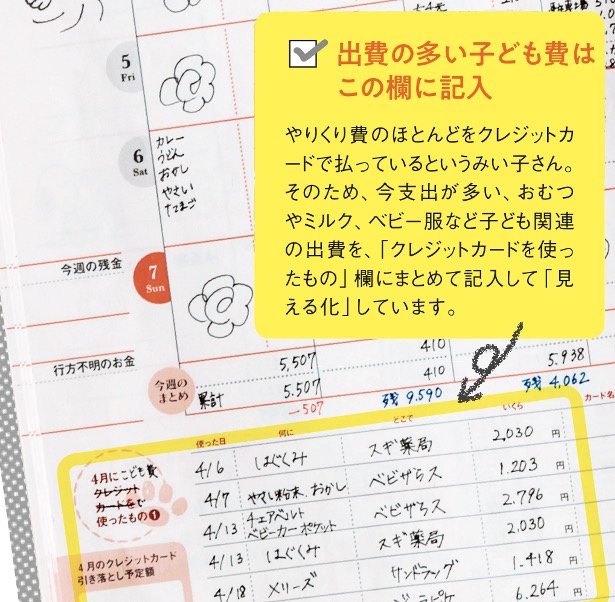 出費の多い子ども費は
この欄に記入
やりくり費のほとんどをクレジットカ
ードで払っているというみい子さん。
そのため、今支出が多い、おむつ
やミルク、ベビー服など子ども関連
の出費を、「クレジットカードを使っ
たもの」欄にまとめて記入して「見
える化」しています。
5
Fri
6
Sat
カレー
うどん
おかし
やさい
たまご
今週の残金
7
Sun
行方不明のお金
今週の
まとめ
5,507 410 5,938
累計 5,507 410
-507 残 9,590 残 4,062
使った日 何に どこで いくら カード名
4月にこども費
クレジット
カードをで
使ったもの❶
4/6 はぐくみ スギ薬局 2,030 円
4/7 やさい粉末、おかし ベビザらス 1,203 円
4/13 チェアベルト ベビザらス 2,796 円
ベビーカーポケット
4/13 はぐくみ スギ薬局 2,030 円
4/18 メリーズ サンドラッグ 1,418 円
6,264 円
4月のクレジットカード
引き落とし予定額